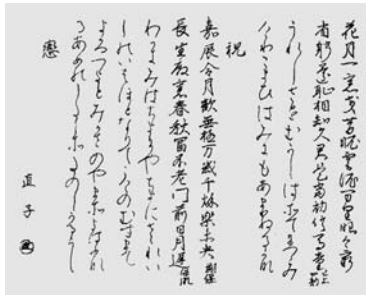 花月一窓交昔眤雲泥万里眼今窮
省躬還恥相知久君是当初竹馬童
うれしさをむかしはそてにつつみ
けりこよひはみにもあまりぬるかな
祝
嘉辰令月歓無極万歳千秋楽未央 謝偃
長生殿裏春秋富不老門前日月遅 保胤
わかきみはちよにやちよにされい
しのいはほとなりてこけのむすまて
よろつよとみかさのやまそよはふな
るあめのしたこそたのしかるらし
恋
直子